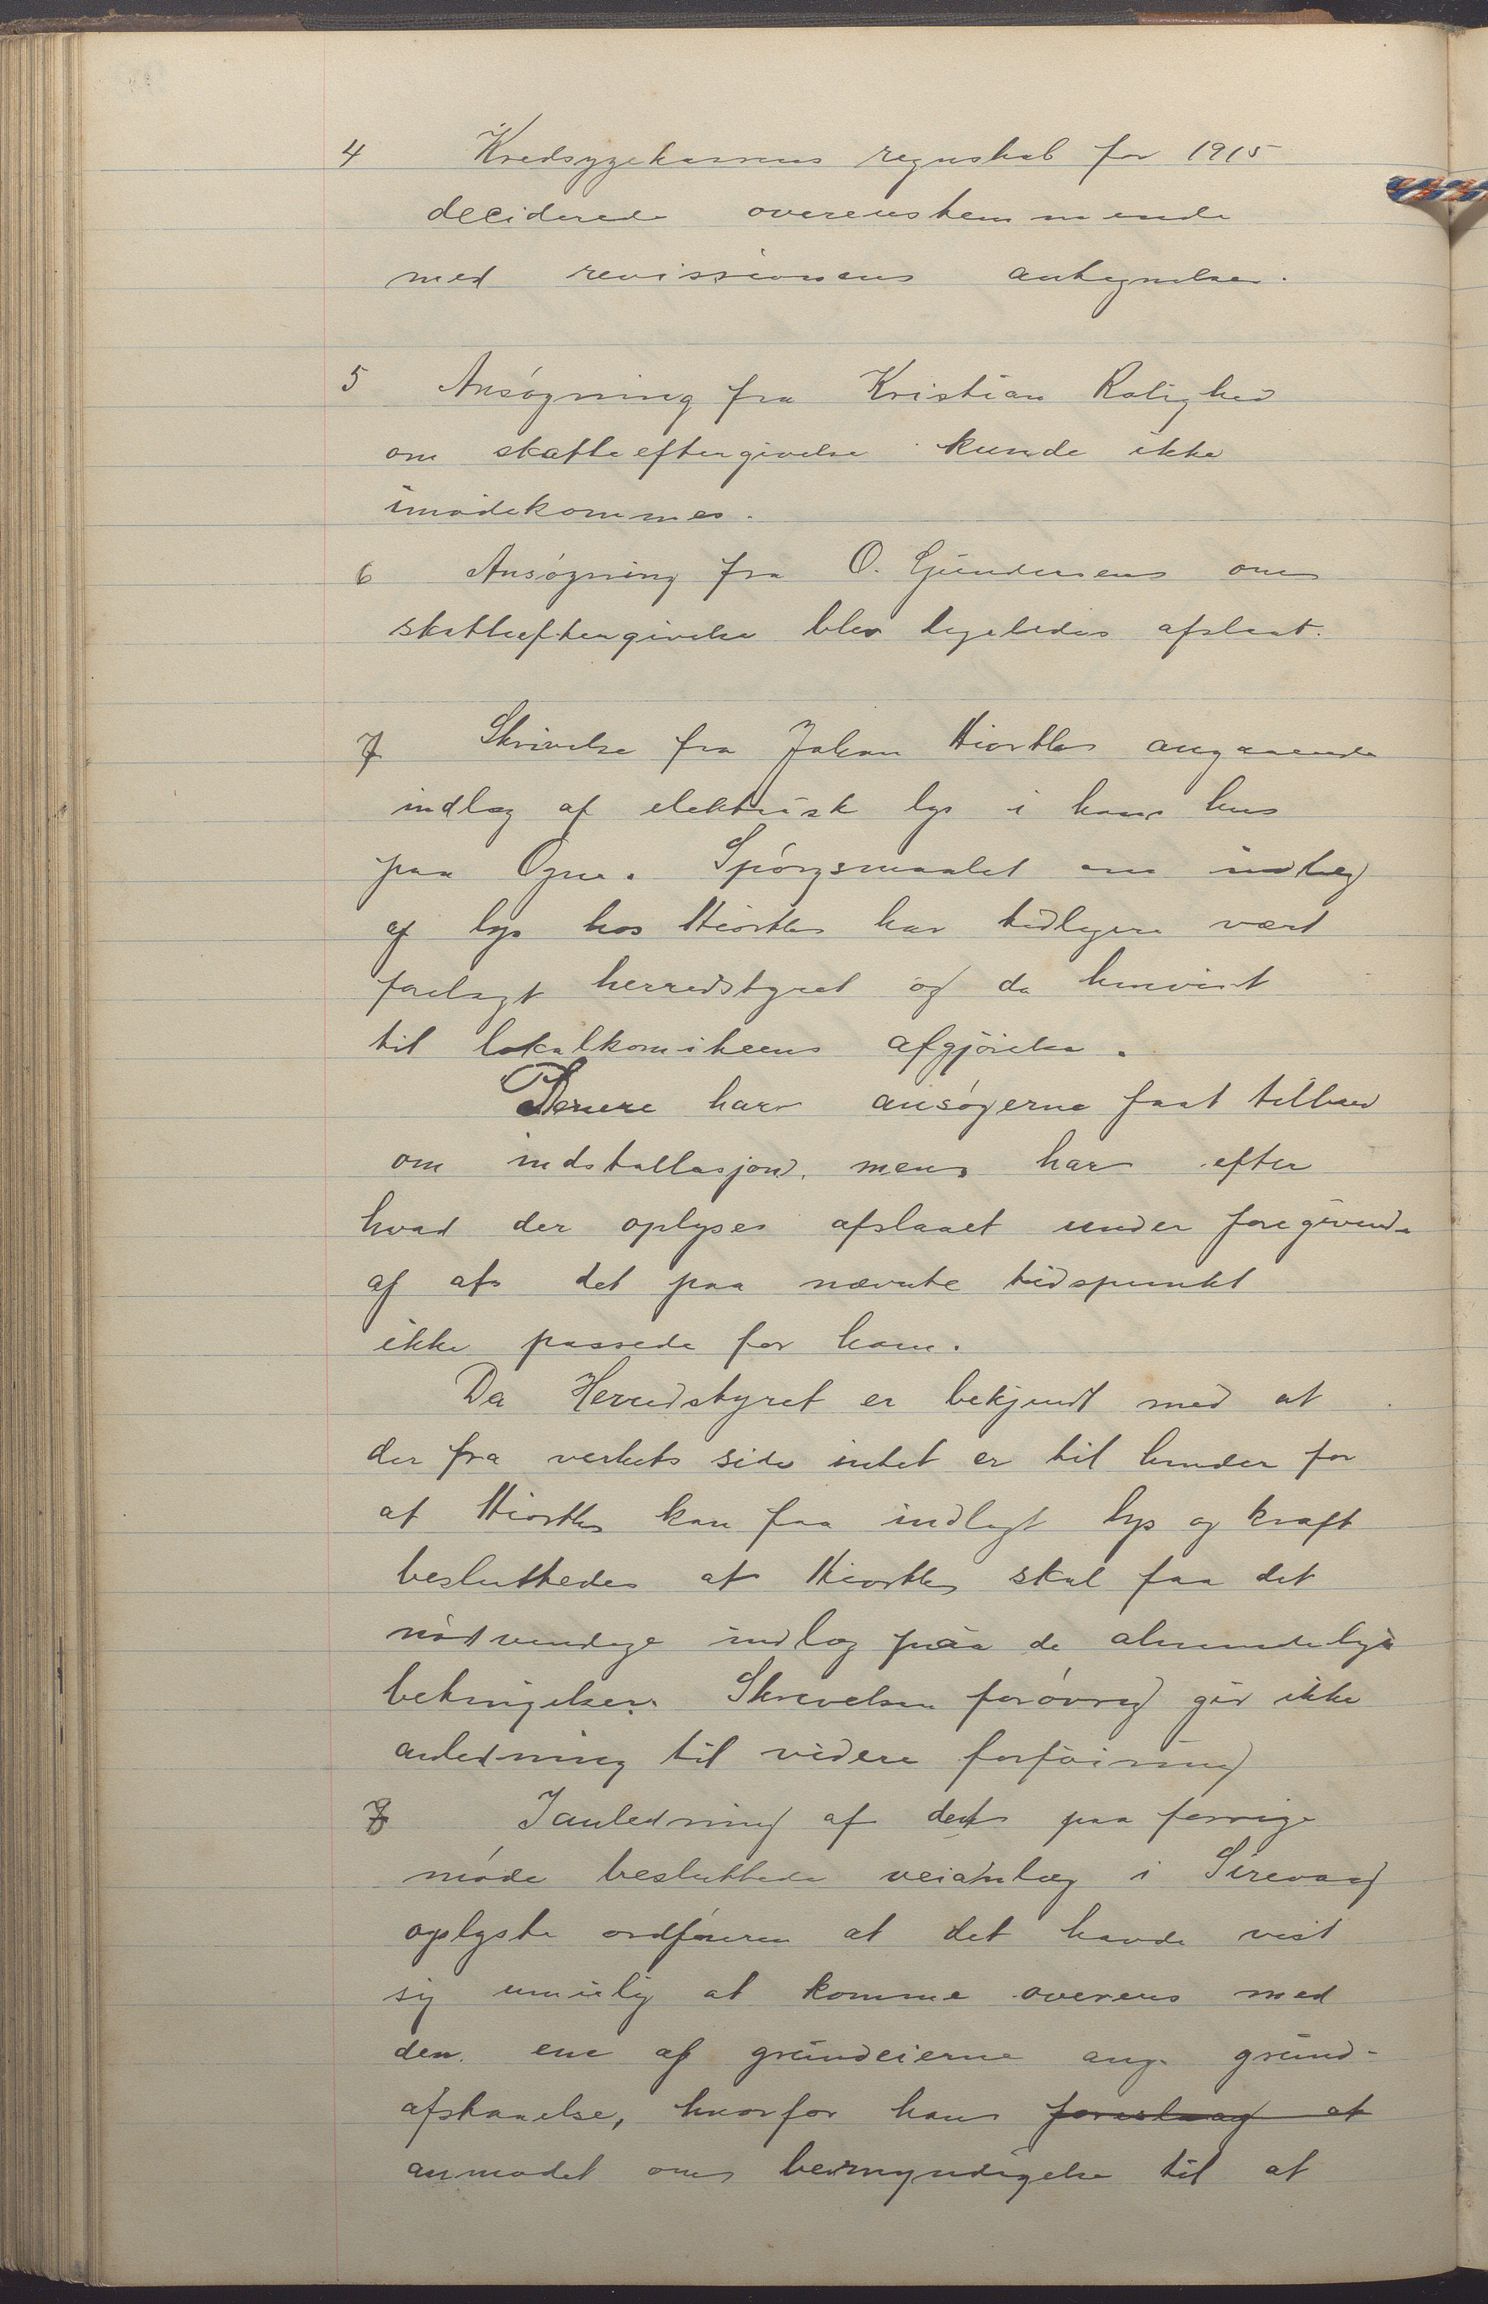 4 Kredsygekassens regnskab for 1915
deciderede overenstemmende
med revissionens antegnelser.
5 Ansøgning fra Kristian Rolighed
om skatteeftergivelse kunde ikke
imødekommes.
6 Ansøgning fra O. Gundersen om
skatteeftergivelse blev ligeledes afslaat.
7 Skrivelse fra Johan Hiorth angaaende
indlæg af elektrisk lys i hans hus
paa Ogne. Spørgsmaalet om indlæg
af lys hos Hiorth har tidligere vært
forelagt herredstyret og da henvist
til lokalkomiteens afgjørelse.
Senere har ansøgerne faat tilbud
om indstallasjon, men har efter
hvad der oplyses afslaaet under foregivende
af at det paa nævnte tidspunkt
ikke passede for ham.
Da Herredstyret er bekjendt med at
der fra verkets side intet er til hinder for
at Hiorth kan faa indlagt lys og kraft
besluttedes at Hiorth skal faa det
nødvendige indlæg paa de almindelige
betingelser. Skrivelsen forøvrig gir ikke
anledning til videre forføining
8 I anledning af det paa forrige
møde besluttede veianlæg i Sirevaag
oplyste ordføreren at det havde vist
sig umulig at komme overens med
den ene af grundeierne ang. grund-
afstaaelse, hvorfor han foreslaag at
anmodet om bemyndigelse til at